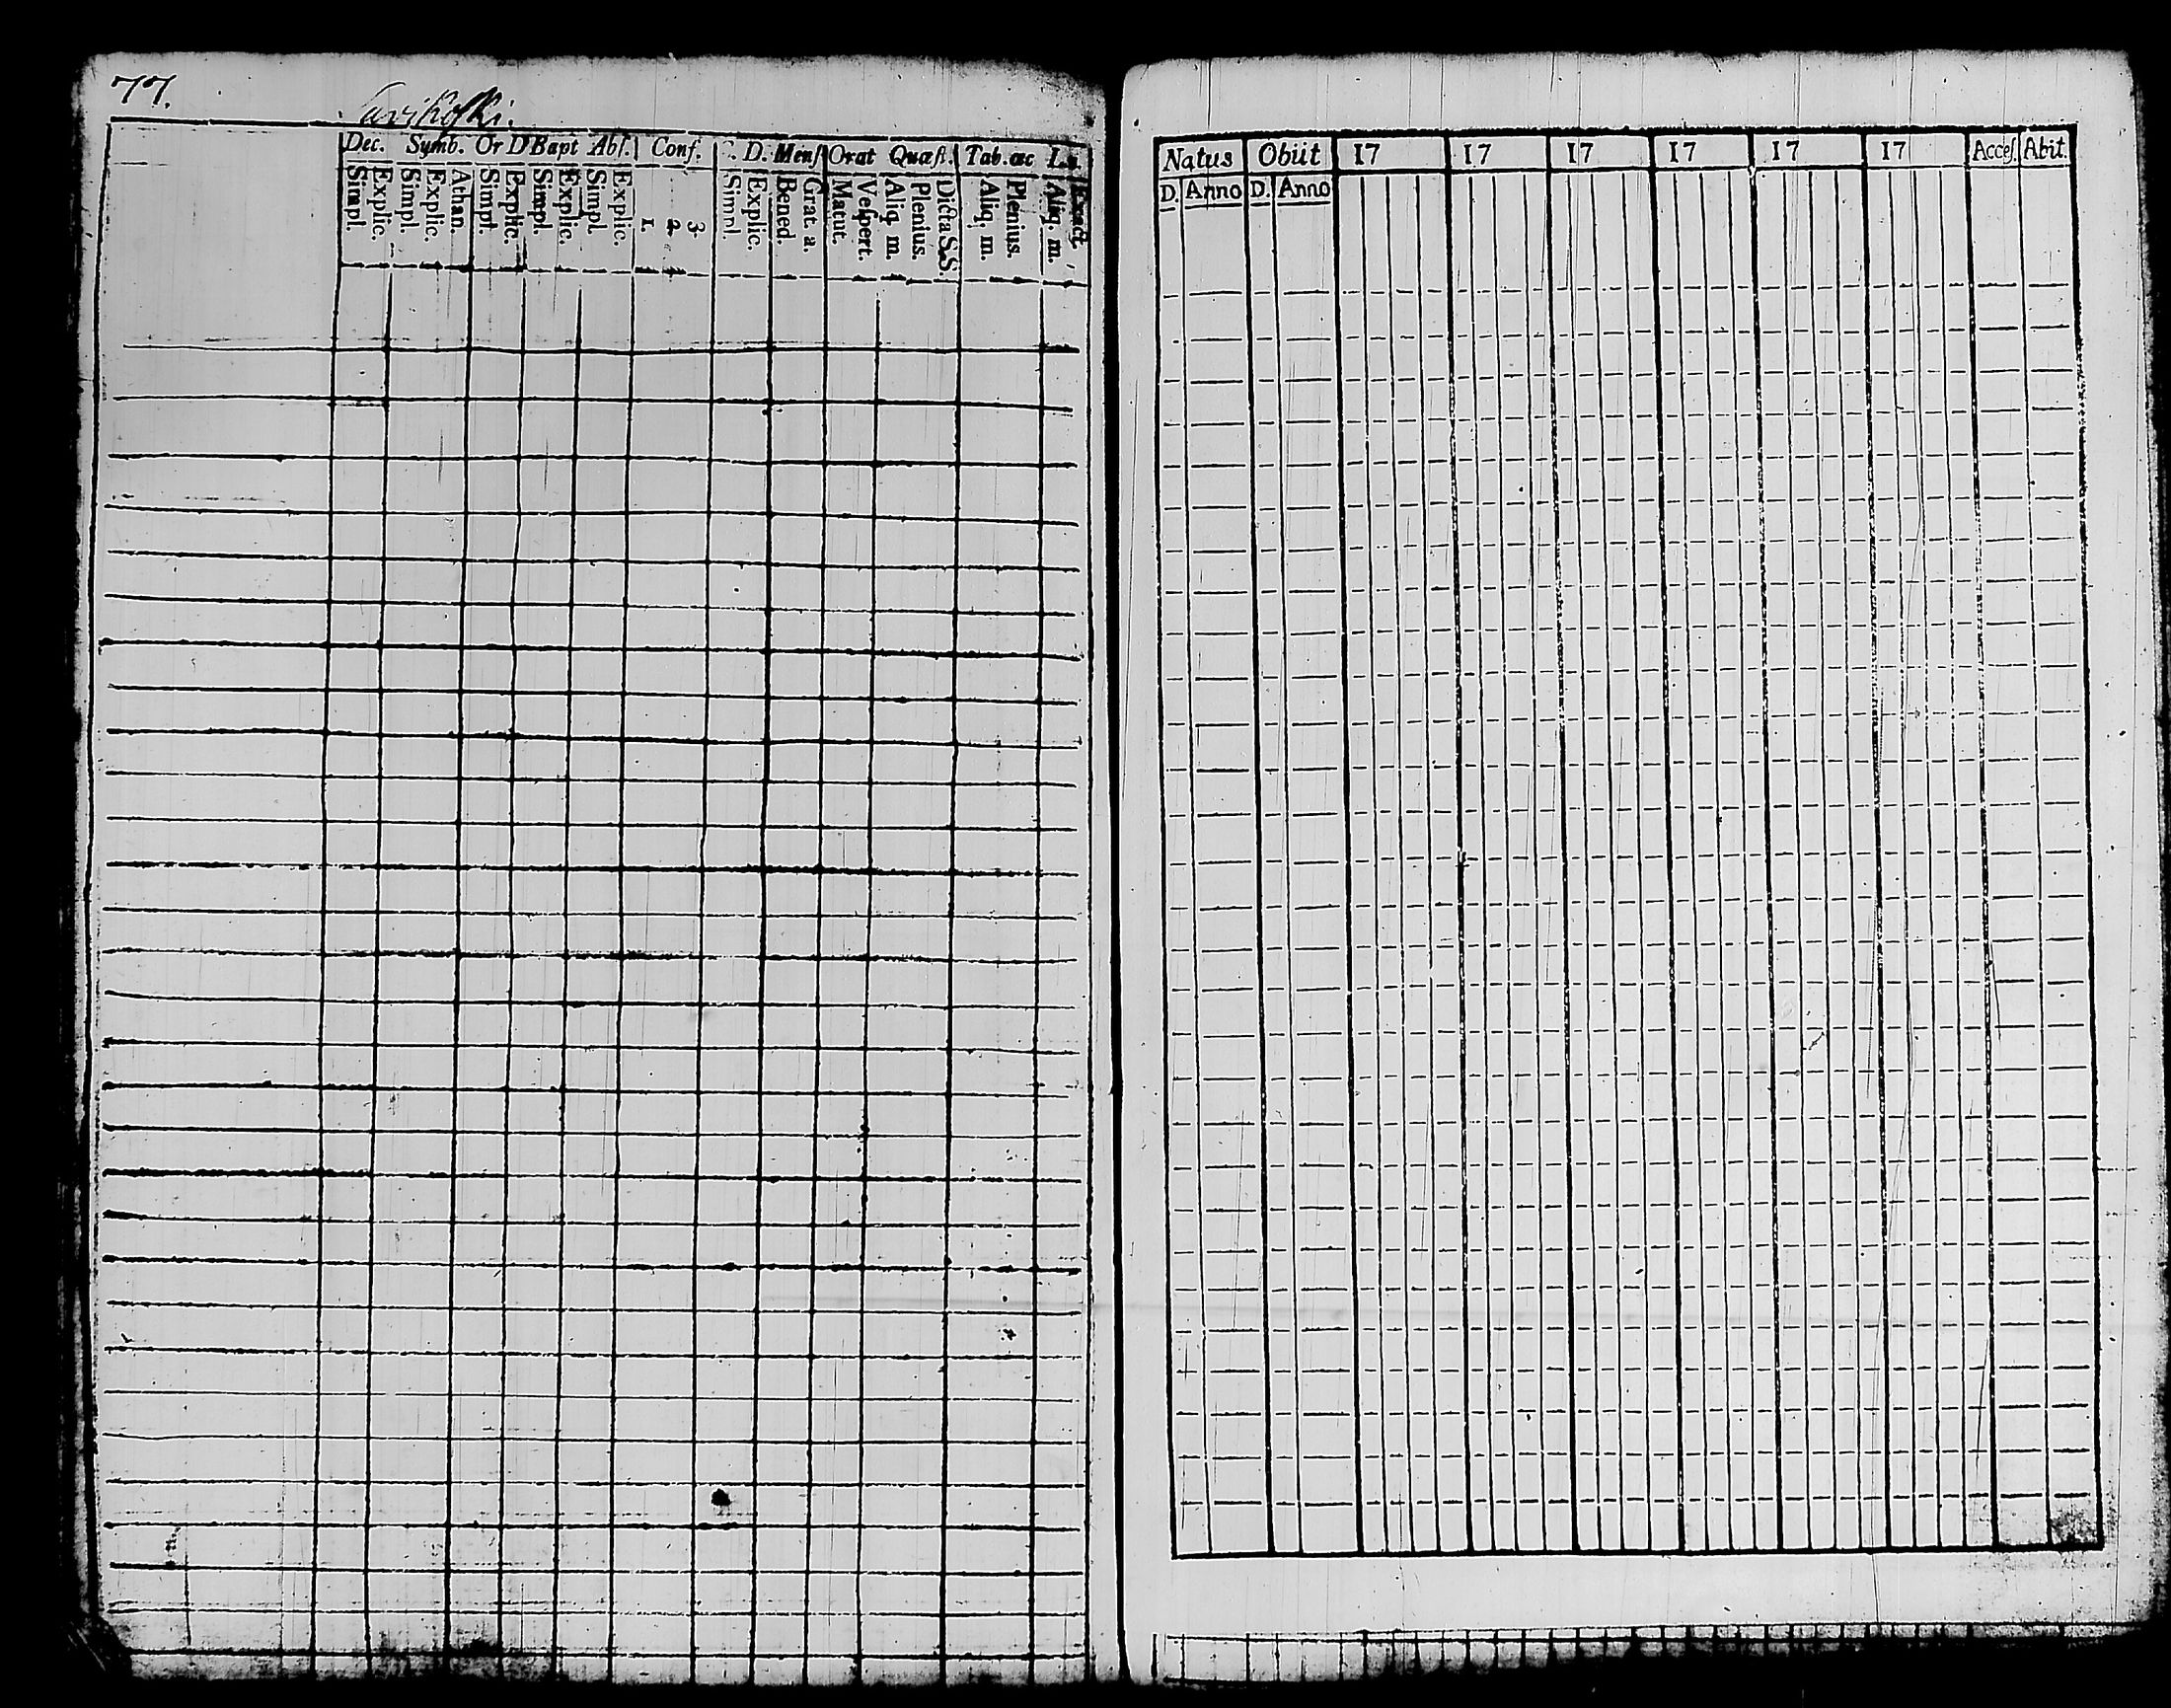 77.
Savikoski.
Dec. Symb. Or D Bapt Abſ. Conf. C. D. Menſ Orat Quæſt. Tab. œc
Simpl. Explic. Simpl. Explic. Athan. Simpl. Explic. Simpl. Explic. Simpl Explic. 1. 2. 3. Simpl. Explic. Bened. Grat. a. Matut. Veſpert. Aliq. m. Plenius. Dicta S.S. Aliq. m. Plenius. Aliq. m. Exact.
Natus Obiit 17 17 17 17 17 17 Acceſ. Abit.
D. Anno D. Anno